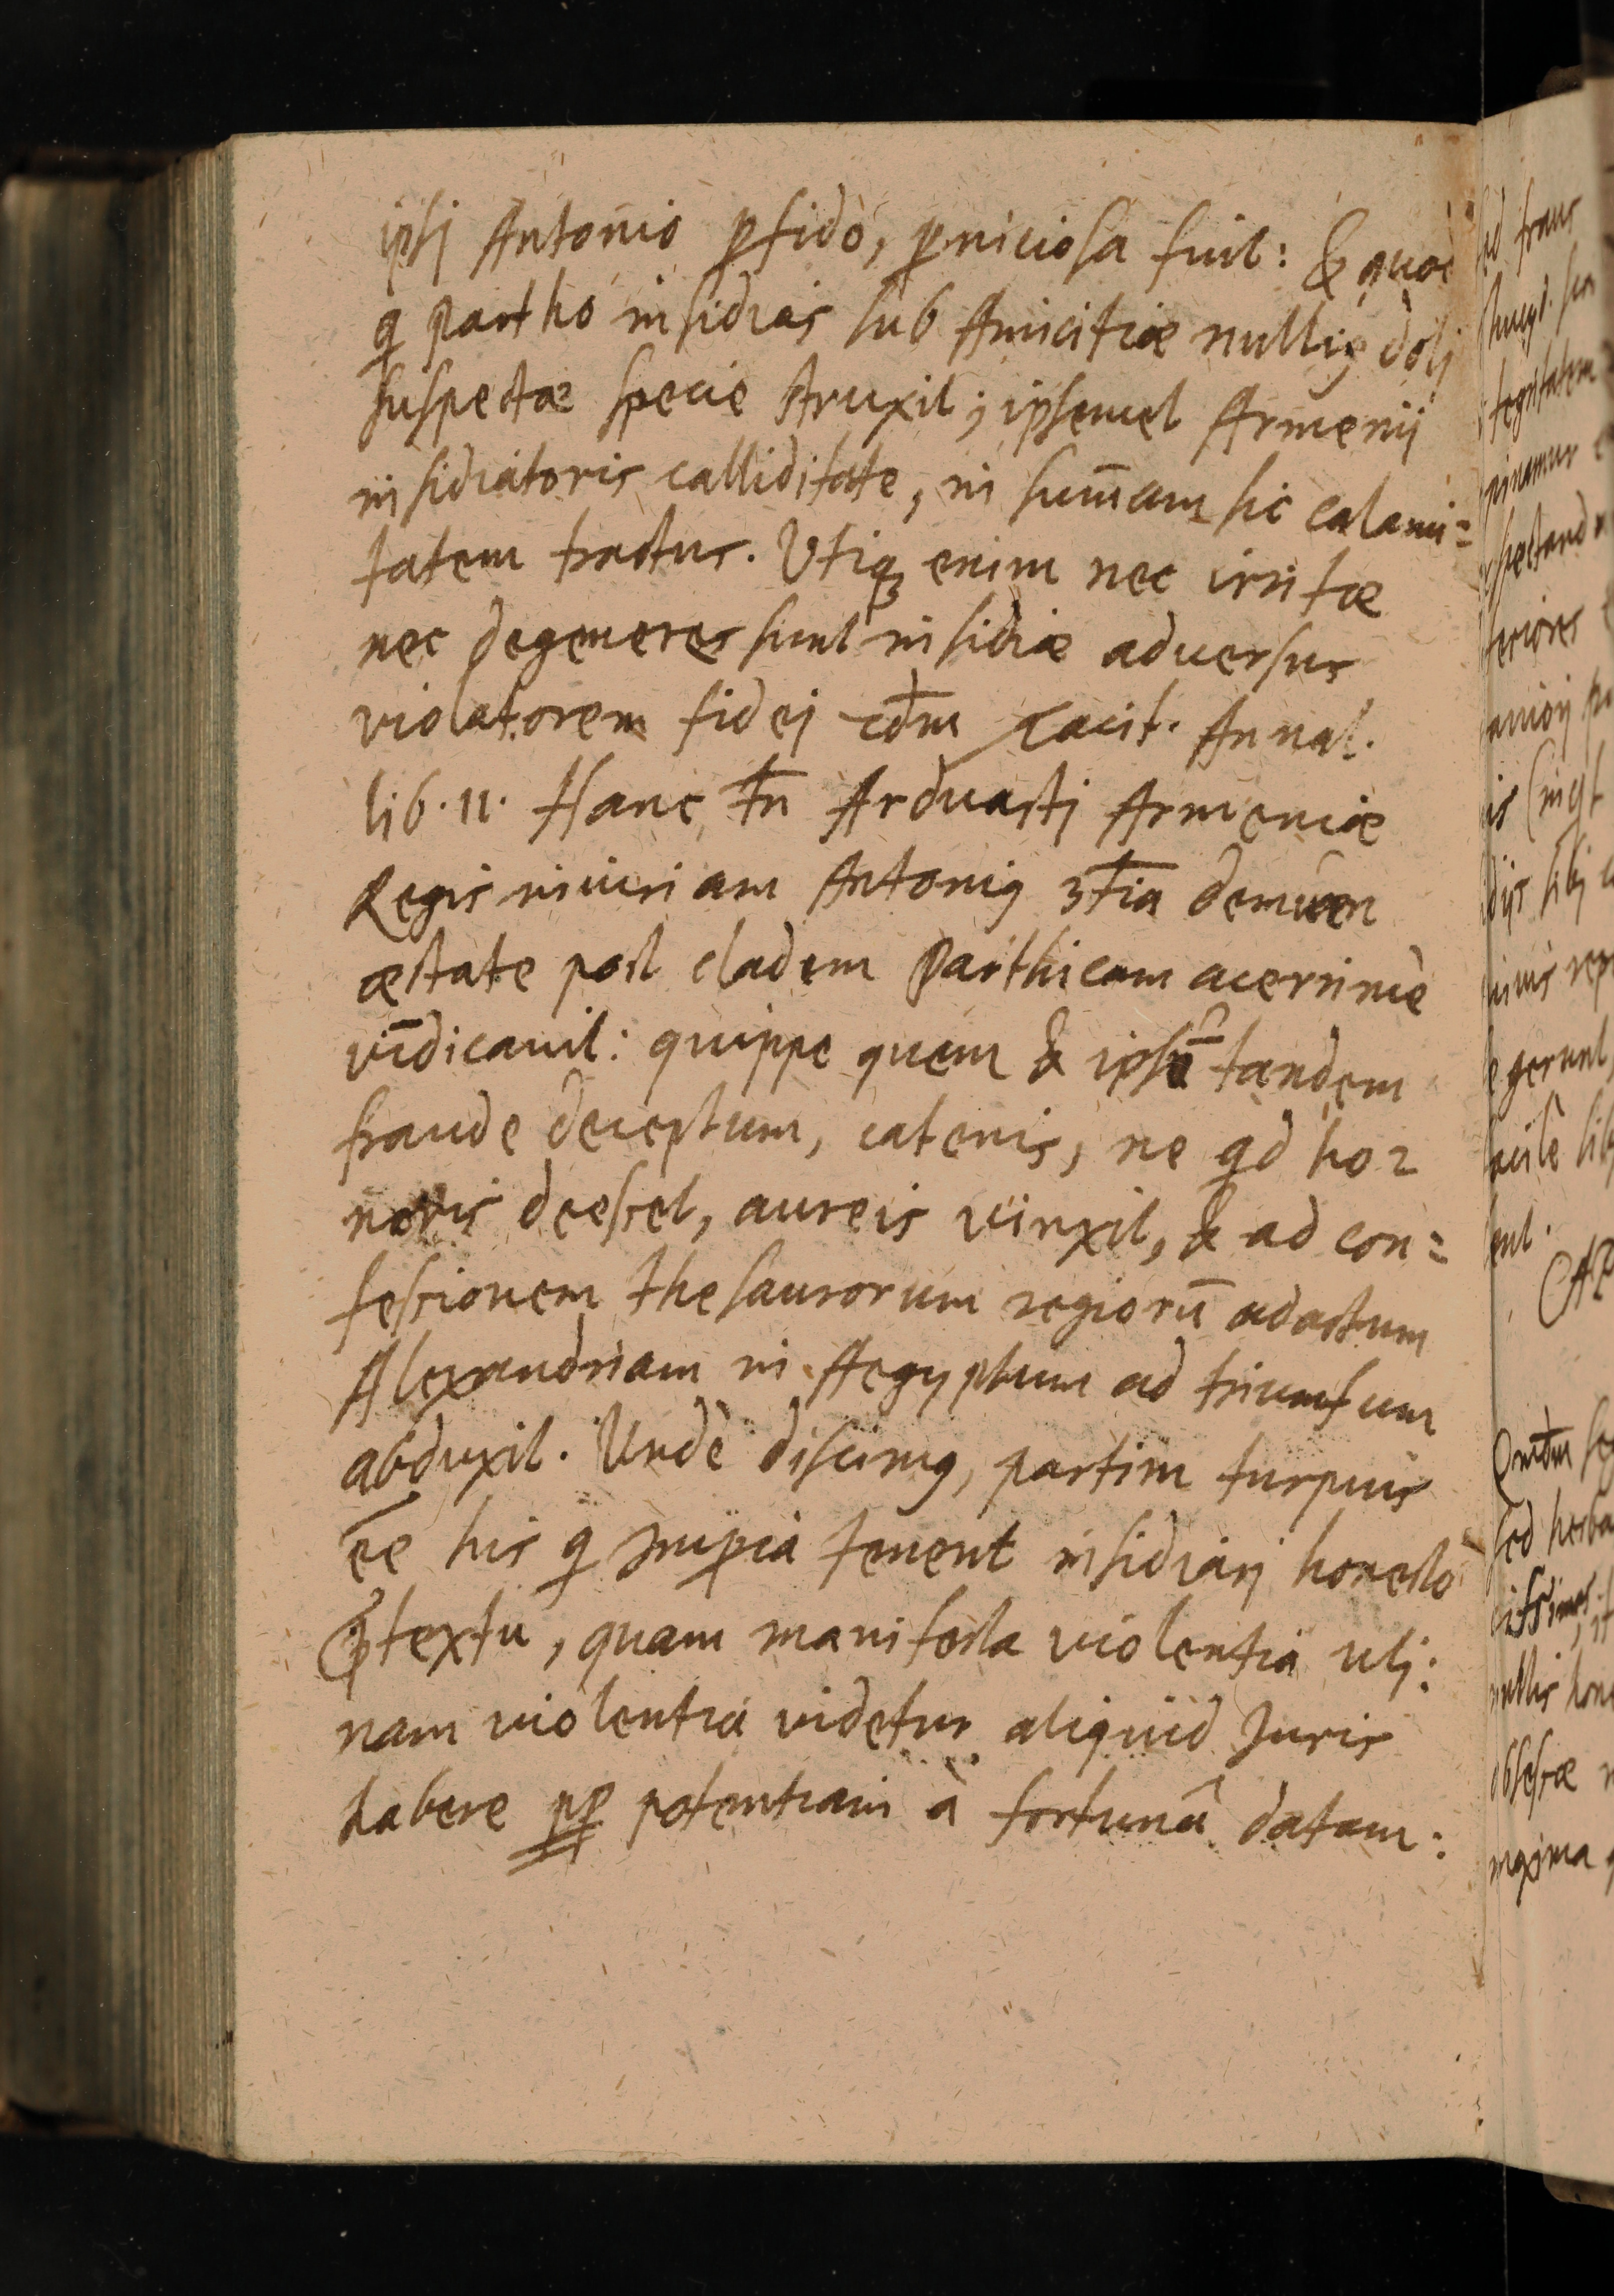 ipsj Antonio ꝑfido, ꝑniciosa fuit: & quod
q Partho insidias sub Amicitiæ nulliꝰ dolj
suspectæ specie struxit; ipsemet Armenij
insidiatoris calliditate, in sum̄am sic calami=
tatem tractus. Utiqꝫ enim nec irritæ
nec degeneres sunt insidiæ adversus
violatorem fidej cdm̄ Tacit. Annal.
lib. 11. Hanc tn̄ Arduastj Armeniæ
Regis iniuriam Antoniꝰ 3tia demum
æstate post cladem Parthicam acerrime
vīdicavit: quippe quem & ipsū tandem
fraude deceptum, catenis, ne qd ho=
noris deesset, aureis vinxit, & ad con=
fessionem thesaurorum regiorū adactum
Alexandriam in Aegyptum ad triumfum
abduxit. Unde discimꝰ, partim turpius
ēē his q Imꝑia tenent insidiarj honesto
p̄textu, quam manifesta violentia utj:
nam violentia videtur aliquid Juris
habere pp potentiam à fortunâ datam: